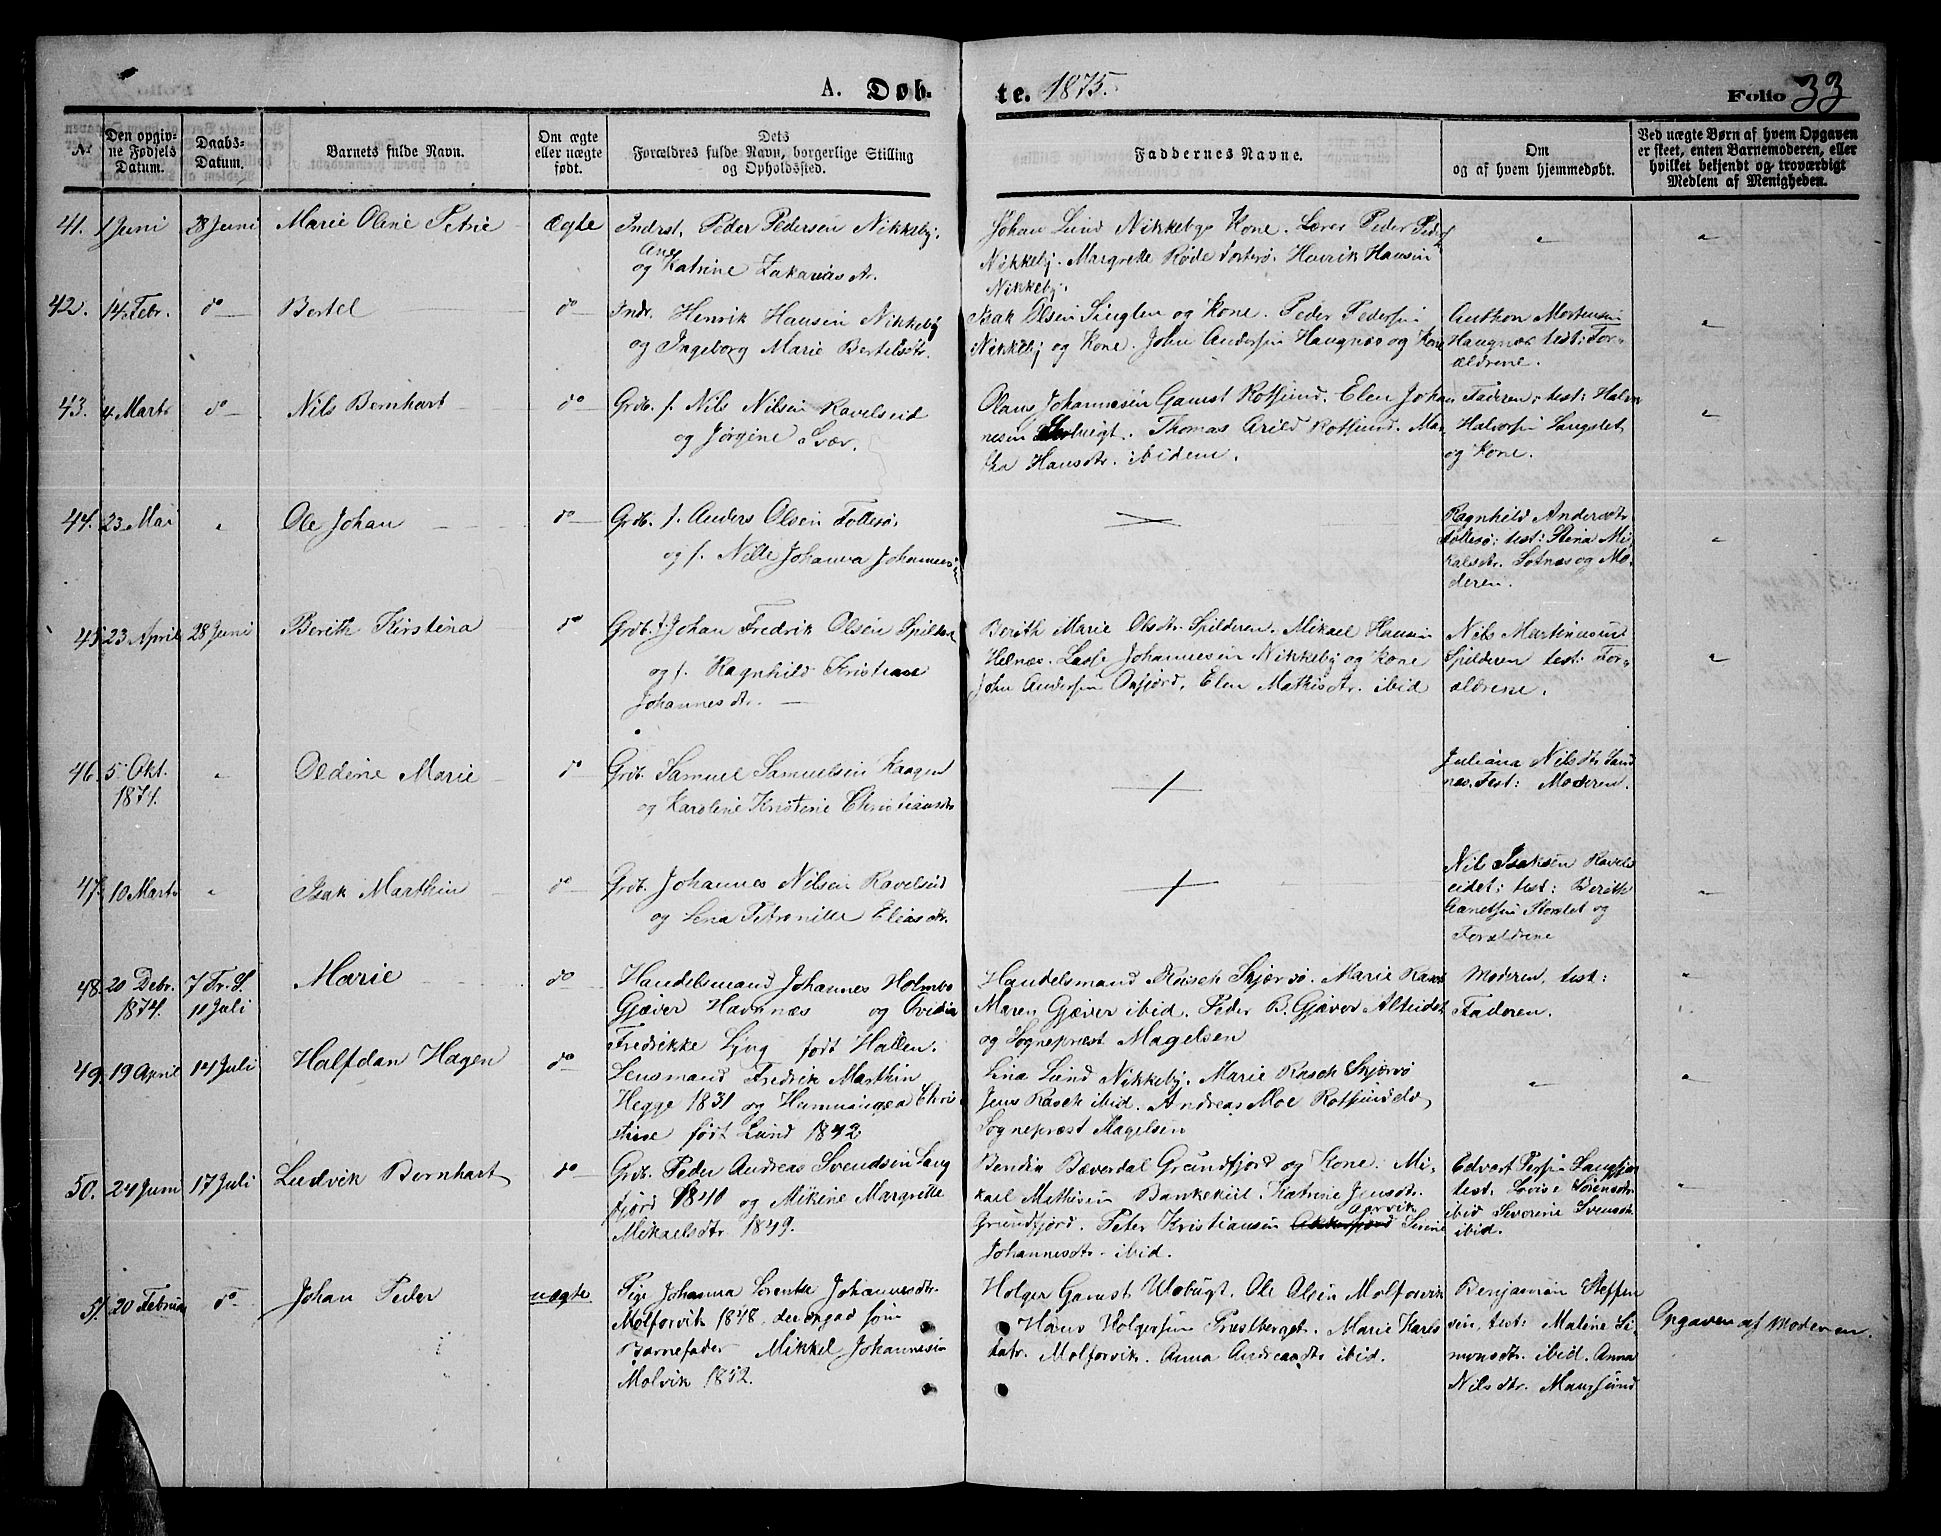 A. Døb-
te. 1875.
Folio 33
Nr.
Den opgiv-
ne Fødsels
Datum.
Daabs-
Datum.
Barnets fulde Navn.
Om ægte
eller uægte
født.
Dets
Forældres fulde Navn, borgerlige Stilling
og Opholdssted.
Faddernes Navne.
Om
og af hvem hjemmedøbt.
Ved uægte Børn af hvem Opgaven
er skeet, enten Barnemoderen, eller
hvilket bekjendt og troværdigt
Medlem af Menigheden.
41. 1 Juni 28 Juni Marie Oline Petrie Ægte
Indrst. Peder Pedersen Nikkeby.
Ane
og Katrine Zakariasdtr.
Johan Lund Nikkeby Kone. Lærer Peder
Nikkeby. Margrette Røde Henrik Hansen
Nikkeby.
42. 14 Febr. do Bertel do
Indr. Henrik Hansen Nikkeby
og Ingeborg Marie Bertelsdtr.
Isak Olsen Singlen og Kone. Peder Pedersen
Nikkeby og Kone. John Andersen Haugnæs og Kone
Anthon Mortensen
Haugnæs test: For-
ældrene.
43. 4 Marts do Nils Bernhart do
Grdb. f. Nils Nilsen Ravelseid
og Jørgine Svær.
Olaus Johannesen Gamst Rotsund. Elen Johan
nesen Thomas Arild Rotsund. Mar
tha Hansdtr. ibidem.
Faderen, test: Halvor
Halvorsen Langslet
og Kone.
44. 23 Mai " Ole Johan do
Grdb. f. Anders Olsen Follesø,
og f. Nille Johanna Johannes
Ragnhild Andersdtr
Follesø: test: Stena Mi-
kalsdtr. Sotnæs og Mo-
deren.
45. 23 April 28 Juni Berith Kirstina do
Grdb. f. Johan Fredrik Olsen Spilder
og f. Ragnhild Kristiane
Johannesdtr.
Berith Marie Olsdtr. Spilderen. Mikael Hansen
Helnæs. Lasse Johannesen Nikkeby og Kone
John Andersen Oxfjord. Elen Mathisdtr. ibid
Nils Martinussen
Spilderen test: For-
ældrene.
46. 5 Okt. " Oldine Marie do
1874.
Grdb. Samuel Samuelsen Kaagen
og Karoline Kristine Christiansdtr
Juliana Nilsdtr Sand
næs. Test: Moderen.
47. 10 Marts " Isak Marthin do
Grdb. Johannes Nilsen Ravelseid
og Lena Petronille Eliasdtr.
Nils Isaksen Ravels
eidet; test: Berith
Storslet og
Forældrene
48. 20 Debr. 7 Tr. S. Marie do
1874. 11 Juli
Handelsmand Johannes Holmbo
Gjæver Havnnæs og Ovidia
Fredrikke Lyng født Hallen.
Handelsmand Rasch Skjærvø. Marie Rasch
Maren Gjæver ibid. Peder B. Gjæver Alteidet
og Sognepræst Magelsen
Moderen, test:
Faderen.
49. 19 April 14 Juli Halfdan Hagen do
Lensmand Fredrik Marthin
Hegge 1831 og Chri
stine født Lund 1842
Lina Lund Nikkeby. Marie Rasch Skjærvø
Jens Rasch ibid. Andreas Moe Rotsundelv,
Sognepræst Magelsen
50. 24 Juni 17 Juli Ludvik Bernhart do
Grdb. Peder Andreas Svendsen Lang
fjord 1840 og Mikine Margrette
Mikaelsdtr. 1849.
Bendix Bæverdal Grundfjord og Kone. Mi-
kael Mathisen Bankekiil. Katrine Jensdtr.
Grundfjord. Peter Kristiansen Serine
Johannesdtr. ibid.
Edvart Persen Langfjor
test: Lovise Sørensdtr.
ibid Severine Svensdtr
ibid.
51. 20 Februar do Johan Peder uægte
Pige Johanna Lorentse Johannesdtr.
Molforvik 1848, der angav som
Barnefader Mikkel Johannesen
Molvik 1852.
Holger Gamst Uløbugt. Ole Olsen Molforvik
Hans Holgersen Præstberget. Marie Karls
datr. Molforvik. Anna Andreasdtr ibid.
Benjamin Steffen
sen, test: Maline Si-
monsdtr. ibid. Anna
Nilsdtr. Maursund
Opgaven af Moderen.